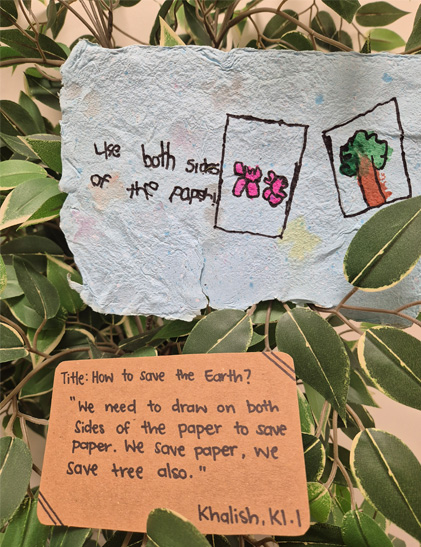 use both sides
of the paper!
Title: How to save the Earth?
"We need to draw on both
sides of the paper to save
paper. We save paper, we
save tree also."
Khalish, K1.1